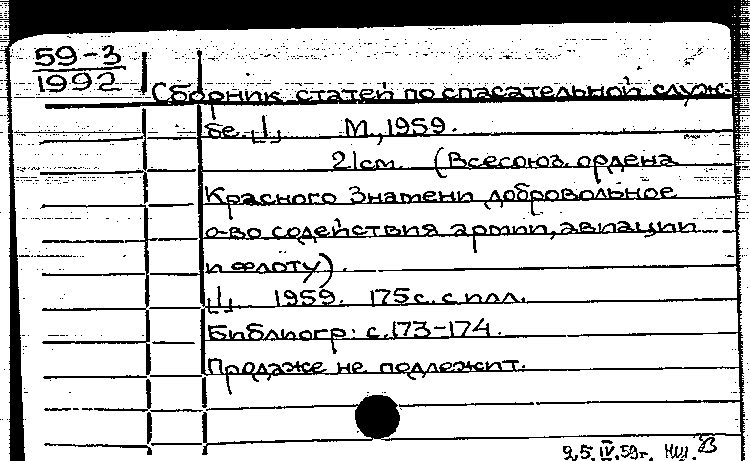 59-3
1992
Сборник статей по спасательной служ-
бе. [1] М., 1959.
21см. (Всесоюз. ордена
Красного Знамени добровольное
о-во содействия армии, авиации
и флоту).
[1] 1959. 175с. с илл.
Библиогр: с.173-174.
Продаже не подлежит.
9,5.IV.59г.